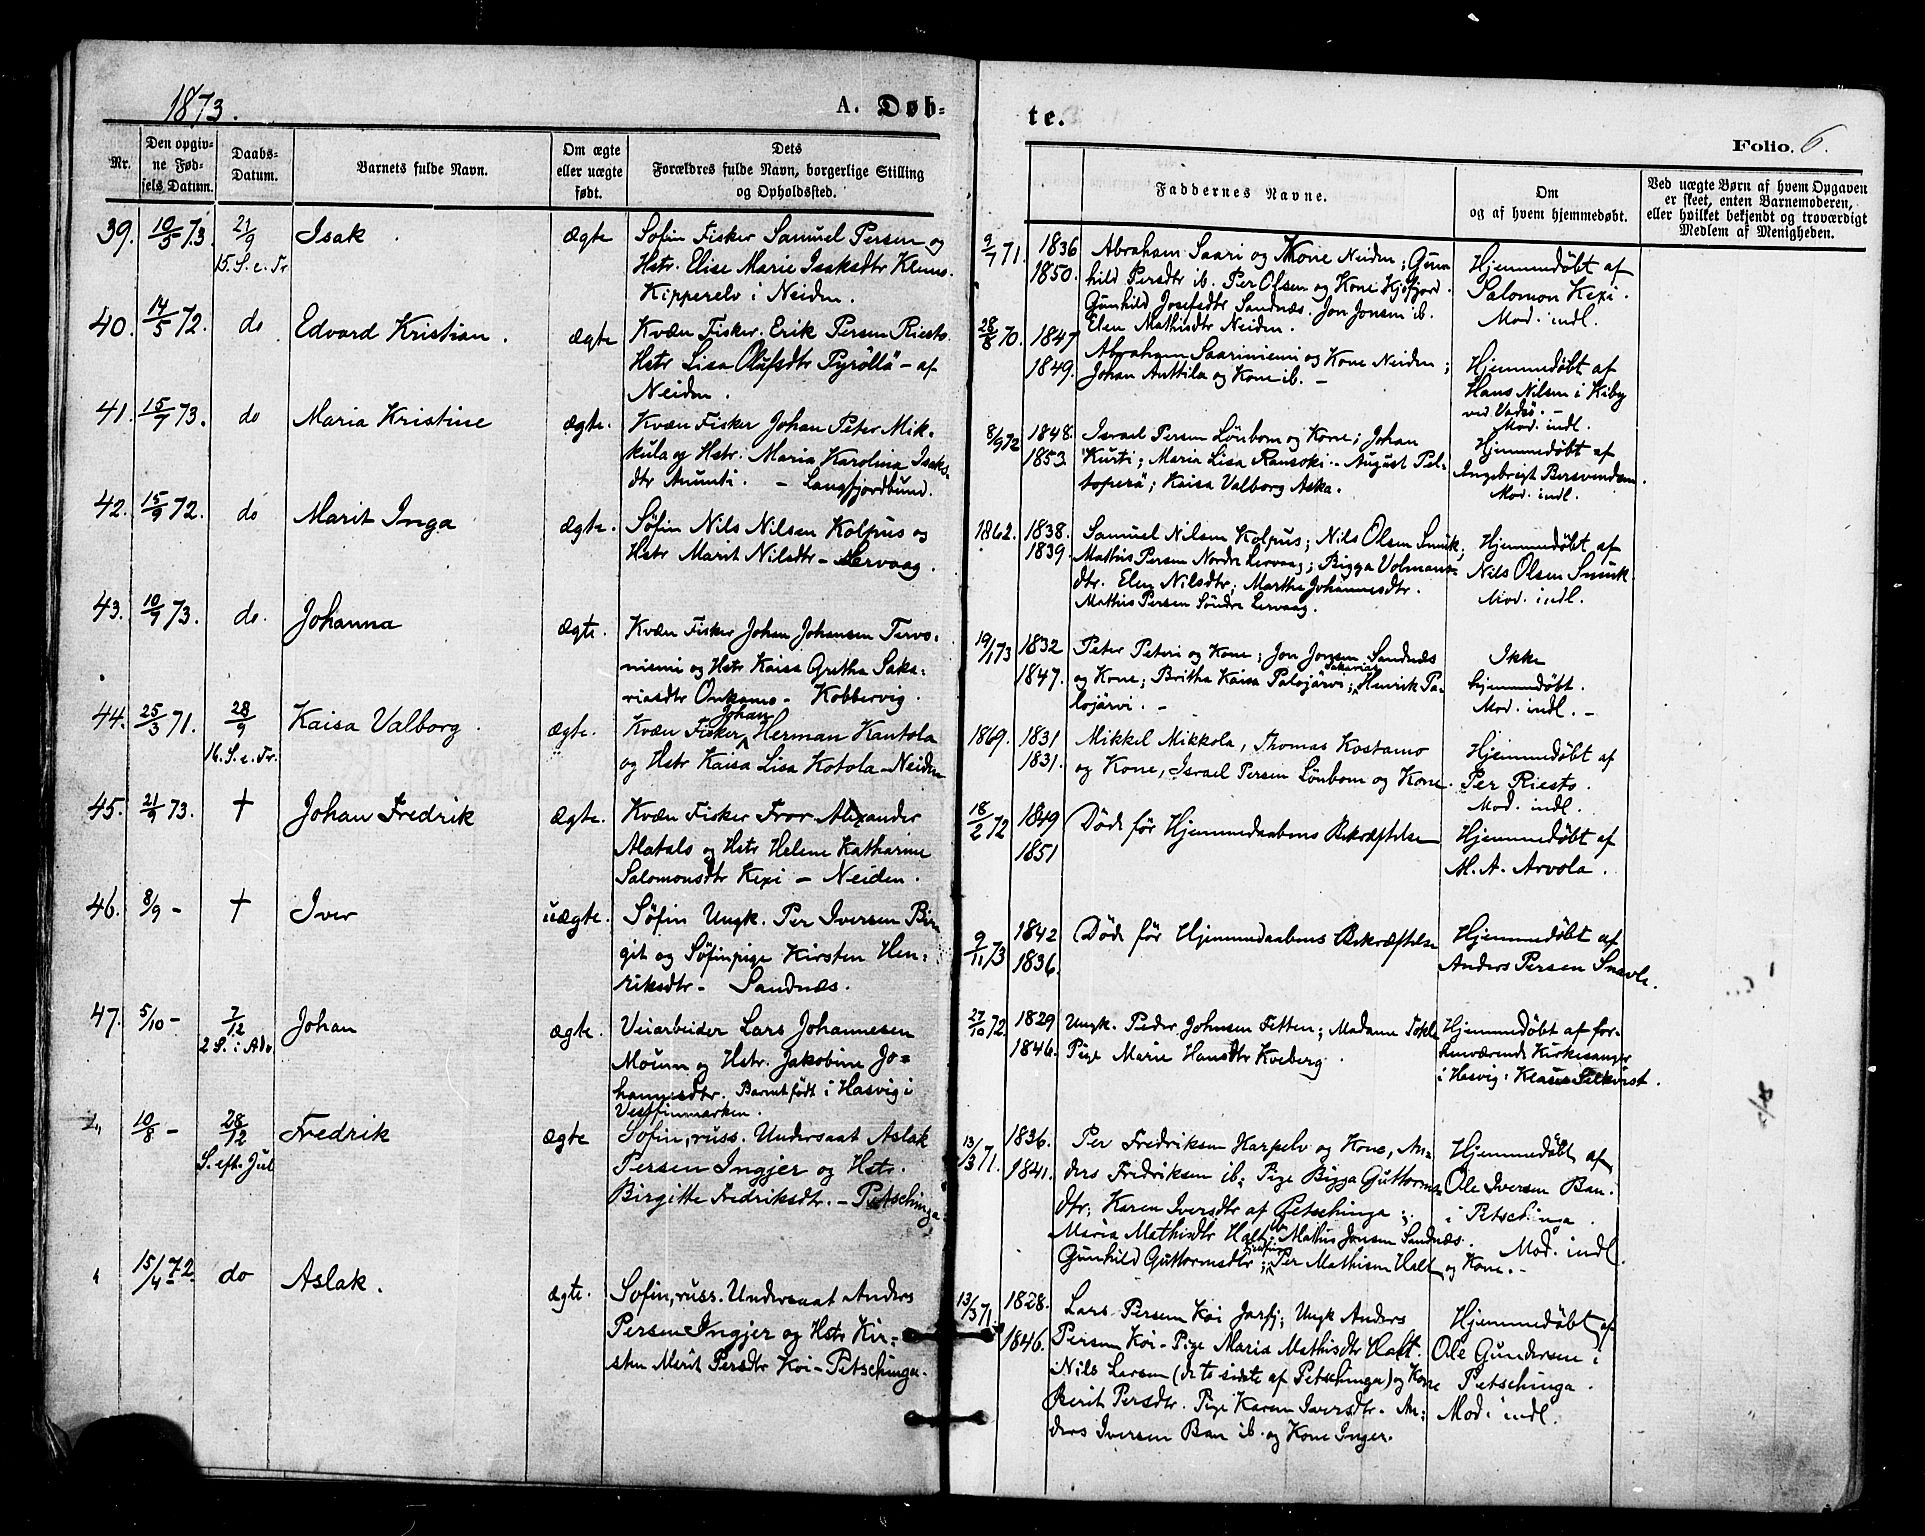 1873.
A. Døb-
te.
Folio. 6.
Nr.
Den opgiv-
ne Fød-
sels Datum.
Daabs-
Datum.
Barnets fulde Navn.
Om ægte
eller uægte
født.
Dets
Forældres fulde Navn, borgerlige Stilling
og Opholdssted.
Faddernes Navne.
Om
og af hvem hjemmedøbt.
Ved uægte Børn af hvem Opgaven
er skeet, enten Barnemoderen,
eller hvilket bekjendt og troværdigt
Medlem af Menigheden.
39. 10/5 73. 21/9 Isak ægte Søfin Fisker Samuel Persen og
15. S. e. Tr Hstr. Elise Marie Isaksdtr
Kipperelv i Neiden.
9/7 71. 1836 Abraham Saari og Kone Neiden; Gun-
1850. hild Persdtr ib. Per Olsen og Kone Kjøfjord.
Gunhild Josefsdtr Sandnæs. Jon Jonsen ib.
Elen Mathisdtr Neiden.
Hjemmedøbt af
Salomon Kexi.
Mod. indl.
40. 14/5 72. do Edvard Kristian. ægte Kvæn Fisker. Erik Persen Riesto.
Hstr Lisa Olufsdtr Pyröllä - af
Neiden.
28/8 70. 1847 Abraham Saariniemi og Kone Neiden;
1849. Johan Anttila og Kone ib. -
Hjemmedøbt af
Hans Nilsen i Kiby
ved Vadsö. -
Mod. indl.
41. 15/7 73. do Maria Kristine ægte. Kvæn Fisker Johan Peter Mik-
kula og Hstr. Maria Karolina Isaks-
dtr - Langfjordbund.
8/9 72 1848. Israel Persen Lönbom og Kone; Johan
1853. Kurti; Maria Lisa Ransoki - August Pel-
toperä; Kaisa Valborg Aska.
Hjemmedøbt af
Ingebrigt Bersvendsen
Mod. indl.
42. 15/9 72. do Marit Inga ægte. Søfin Nils Nilsen Kolpus og
Hstr Marit Nilsdtr - Lervaag.
1862. 1838. Samuel Nilsen Kolpus; Nils Olsen Smuk;
1839. Mathis Persen Nordre Lervaag; Bigga Volmans-
dtr. Elen Nilsdtr; Marthe Johannesdtr.
Mathis Persen Söndre Lervaag.
Hjemmedøbt af
Nils Olsen Smuk
Mod. indl.
43. 10/9 73. do. Johanna ægte. Kvæn Fisker Johan Johansen Tervo-
niemi og Hstr Kaisa Gretha Saka-
riasdtr Onkamo - Kobbervig.
19/1 73 1832 Peter Peteri og Kone; Jon Jonsen Sandnæs
1847. og Kone; Britha Kaisa Palojärvi; Sakarias Henrik Pa-
lojärvi. -
Ikke
hjemmedøbt.
Mod. indl. -
44. 25/3 71. 28/9 Kaisa Valborg. ægte. Kvæn Fisker Johan Herman Kantola
16. S. e. Tr. og Hstr Kaisa Lisa Kotola - Neiden
1869. 1831 Mikkel Mikkola, Thomas Kostamo
1831. og Kone, Israel Persen Lönbom og Kone.
Hjemmedøbt af
Per Riesto.
Mod. indl.
45. 21/9 73. † Johan Fredrik ægte. Kvæn Fisker Alexander
Alatalo og Hstr Helene Katharine
Salomonsdtr Kexi - Neiden.
18/2 72 1849 Døde før Hjemmedaabens Bekræftelse
1851
Hjemmedøbt af
M. A. Arvola.
46. 8/9 - † Iver uægte. Søfin Ungk. Per Iversen Bir-
git og Søfinpige Kirsten Hen-
riksdtr - Sandnæs.
9/11 73 1842 Døde før Hjemmedaabens Bekræftelse
1836.
Hjemmedøbt af
Anders Persen Snavle.
47. 5/10 - 7/12 Johan ægte. Veiarbeider Lars Johannesen
2 S. i Adv. Mouen og Hstr. Jakobine Jo-
hannesdtr. Barnet født i Hasvig i
Vestfinmarken.
27/10 72 1829 Ungk. Peder Johnsen Fetten; Madame Tokle
1846. Pige Marie Hansdtr Kveberg.
Hjemmedøbt af for-
henværende Kirkesanger
i Hasvig: Klaus
10/8 - 28/12 Fredrik ægte Søfin, russ. Undersaat Aslak
S. eft. Jul Persen Ingjer og Hstr.
Birgitte Fredriksdtr. - Petschinga.
13/3 71. 1836. Per Fredriksen Karpelv og Kone, An-
1841. ders Fredriksen ib; Pige Bigga Guttorms-
dtr; Karen Iversdtr af Petschinga;
Maria Mathisdtr Halt ib. Mathis Jonsen Sandnæs.
Gunhild Guttormsdtr; Per Mathisen Halt og Kone. -
Hjemmedøbt af
Ole Iversen Ban.
i Petschinga.
Mod. indl.
15/4 72. do Aslak. ægte. Søfin, russ. Undersaat Anders
Persen Ingjer og Hstr Kir-
sten Marit Persdtr Koi - Petschinga.
13/3 71. 1828. Lars Persen Koi Jarfj; Ungk Anders
1846. Persen Koi - Pige Maria Mathisdtr Halt.
Nils Larsen (de to sidste af Petschinga) og Kone
Berit Persdtr. Pige Karen Iversdtr. An-
ders Iversen Ban ib. og Kone Inger.
Hjemmedøbt af
Ole Gundersen i
Petschinga.
Mod. indl.